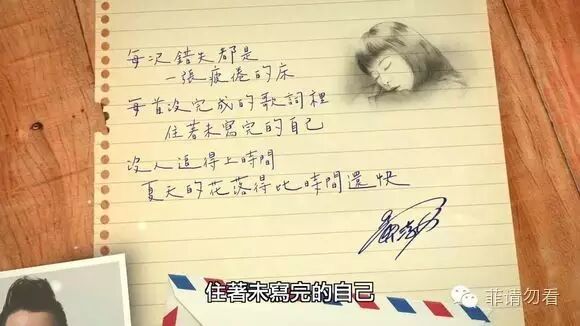 每次錯失都是
一張疲倦的床
每首沒完成的歌詞裡
住著未寫完的自己
沒人追得上時間
夏天的花落得比時間還快
住著未寫完的自己
菲请勿看